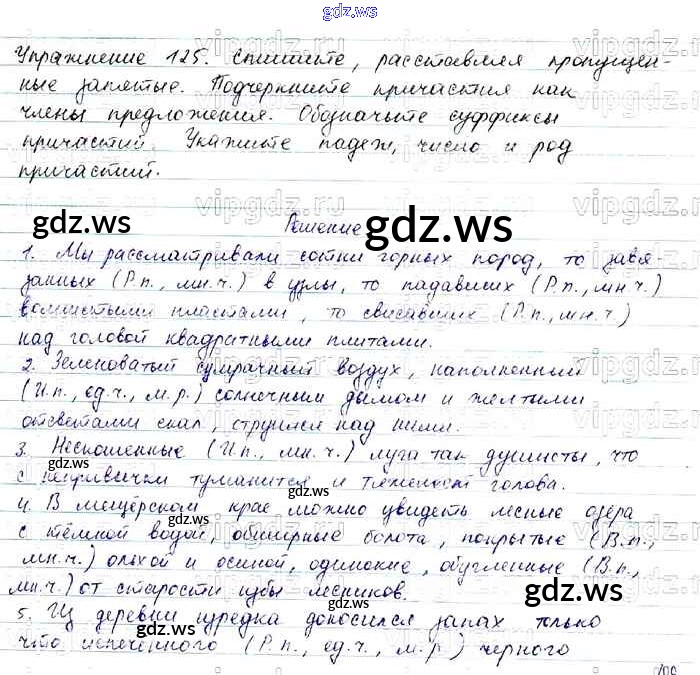 gdz.ws
Упражнение 125. Спишите, расставляя пропущен-
ные запятые. Подчеркните причастия как
члены предложения. Обозначьте суффиксы
причастий. Укажите падеж, число и род
причастий.
gdz.ws Решение gdz.ws
1. Мы рассматривали сотни горных пород, то завя-
занных (Р.п., мн.ч.) в узлы, то падавших (Р.п., мн.ч.)
волнистыми пластами, то свисавших (Р.п., мн.ч.)
над головой квадратными плитами.
2. Зеленоватый сумрачный воздух, наполненный
(И.п., ед.ч., м.р.) солнечным дымом и желтыми
отсветами скал, струился над ними.
3. Нескошенные (И.п., мн.ч.) луга так душисты, что
gdz.ws
с непривычки туманится и тяжелеет голова.
gdz.ws
4. В мещёрском крае можно увидеть лесные озера
с тёмной водой, обширные болота, покрытые (В.п.,
мн.ч.) ольхой и осиной, одинокие, обугленные (В.п.,
мн.ч.) от старости избы лесников.
gdz.ws
5. Из деревни изредка доносился запах только
gdz.ws gdz.ws
что испеченного (Р.п., ед.ч., м.р.) черного